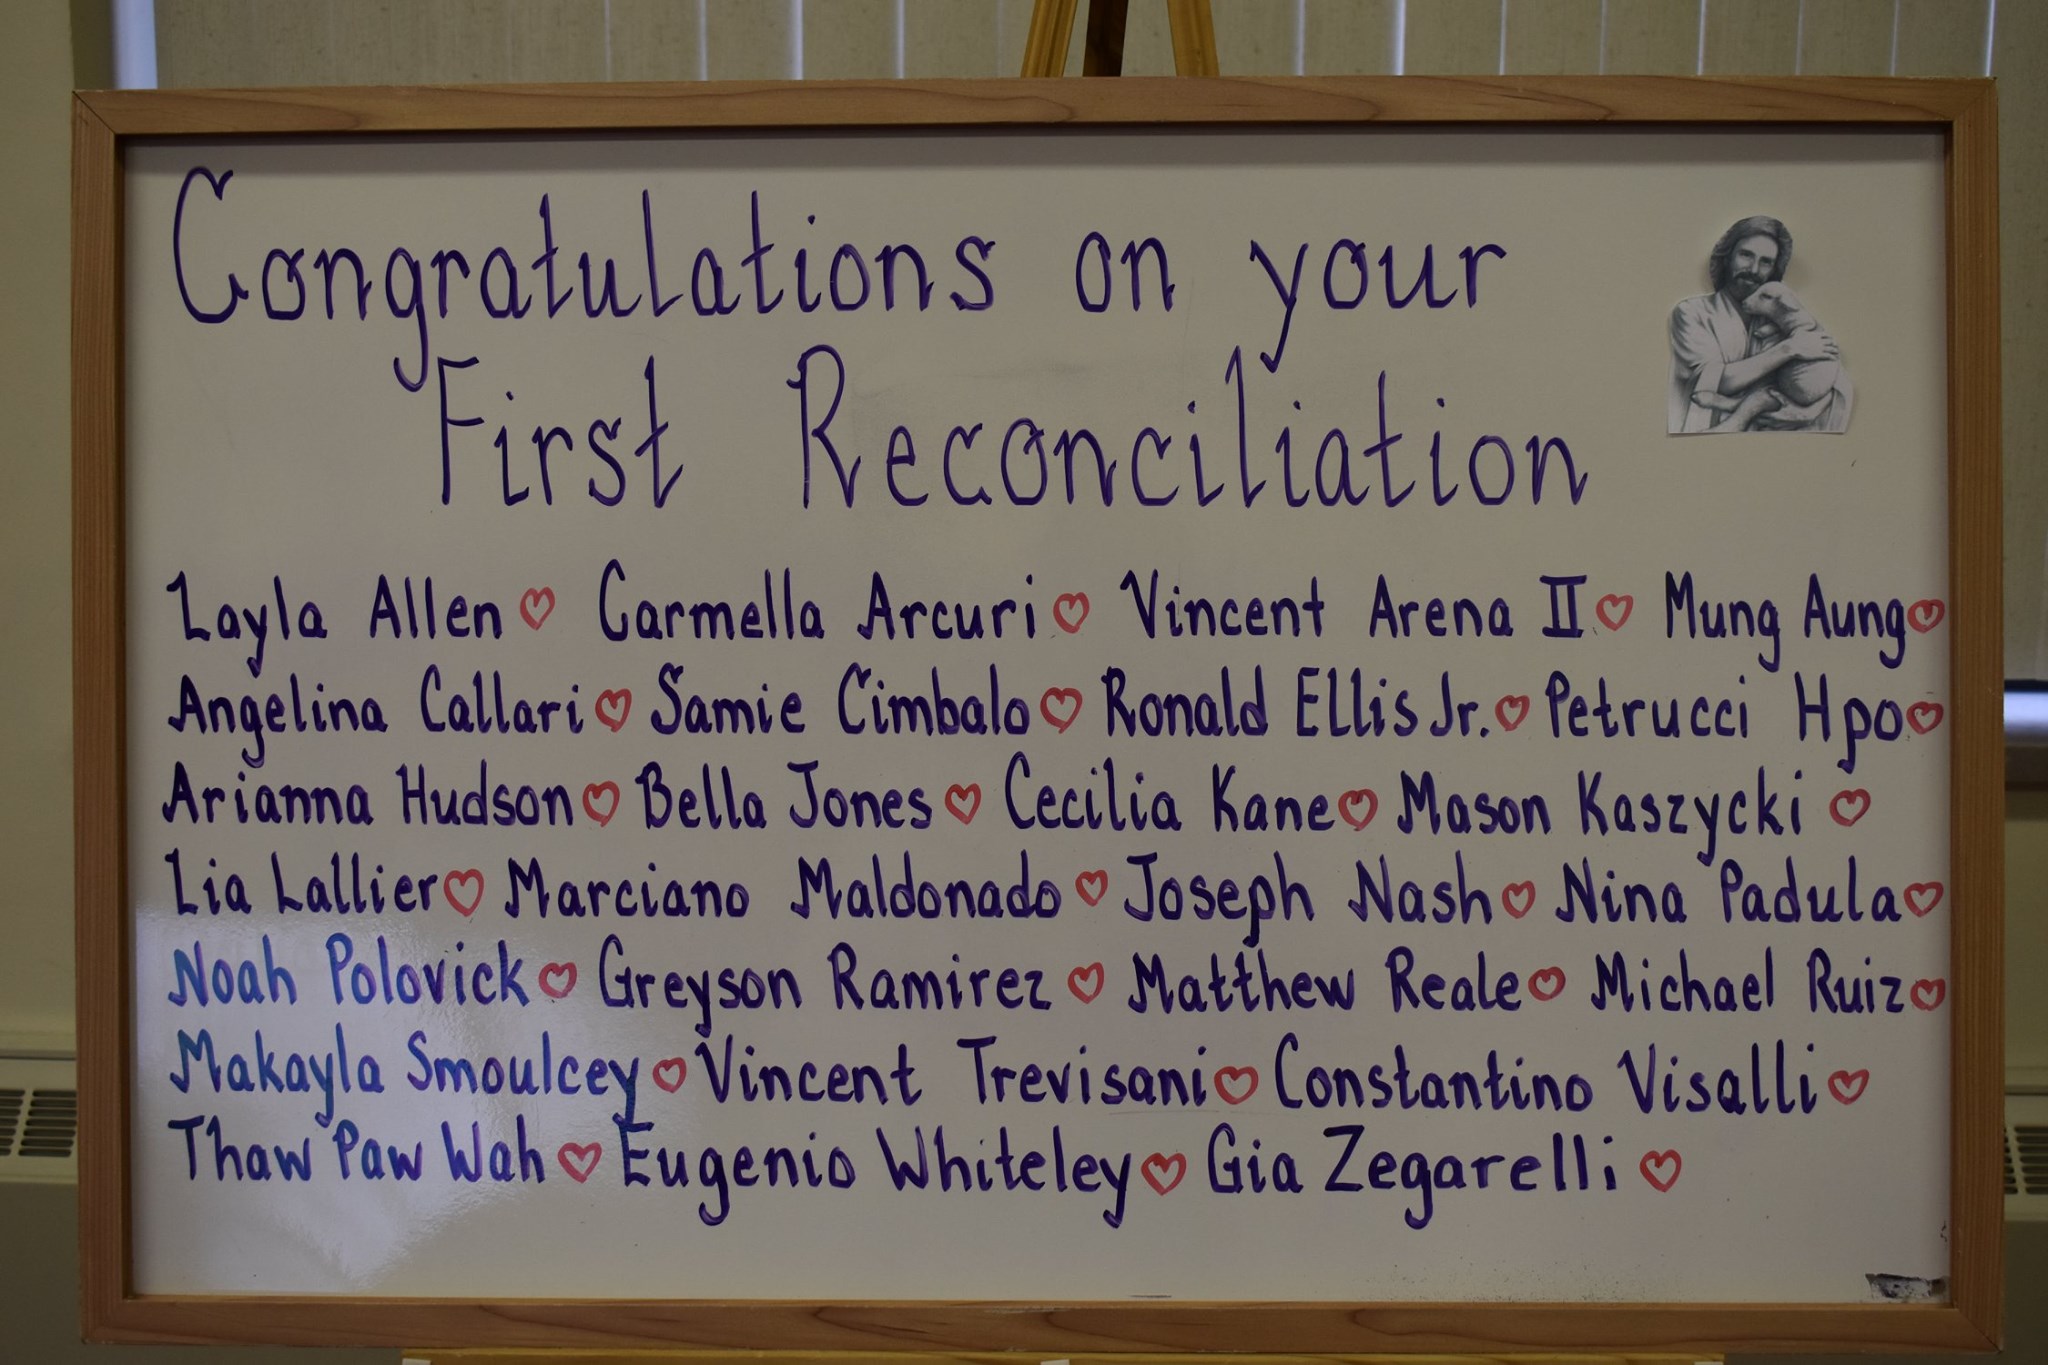 Congratulations on your
First Reconciliation
Layla Allen ♡ Carmella Arcuri ♡ Vincent Arena II ♡ Mung Aung ♡
Angelina Callari ♡ Samie Cimbalo ♡ Ronald Ellis Jr. ♡ Petrucci Hpo ♡
Arianna Hudson ♡ Bella Jones ♡ Cecilia Kane ♡ Mason Kaszycki ♡
Lia Lallier ♡ Marciano Maldonado ♡ Joseph Nash ♡ Nina Padula ♡
Noah Polovick ♡ Greyson Ramirez ♡ Matthew Reale ♡ Michael Ruiz ♡
Makayla Smoulcey ♡ Vincent Trevisani ♡ Constantino Visalli ♡
Thaw Paw Wah ♡ Eugenio Whiteley ♡ Gia Zegarelli ♡